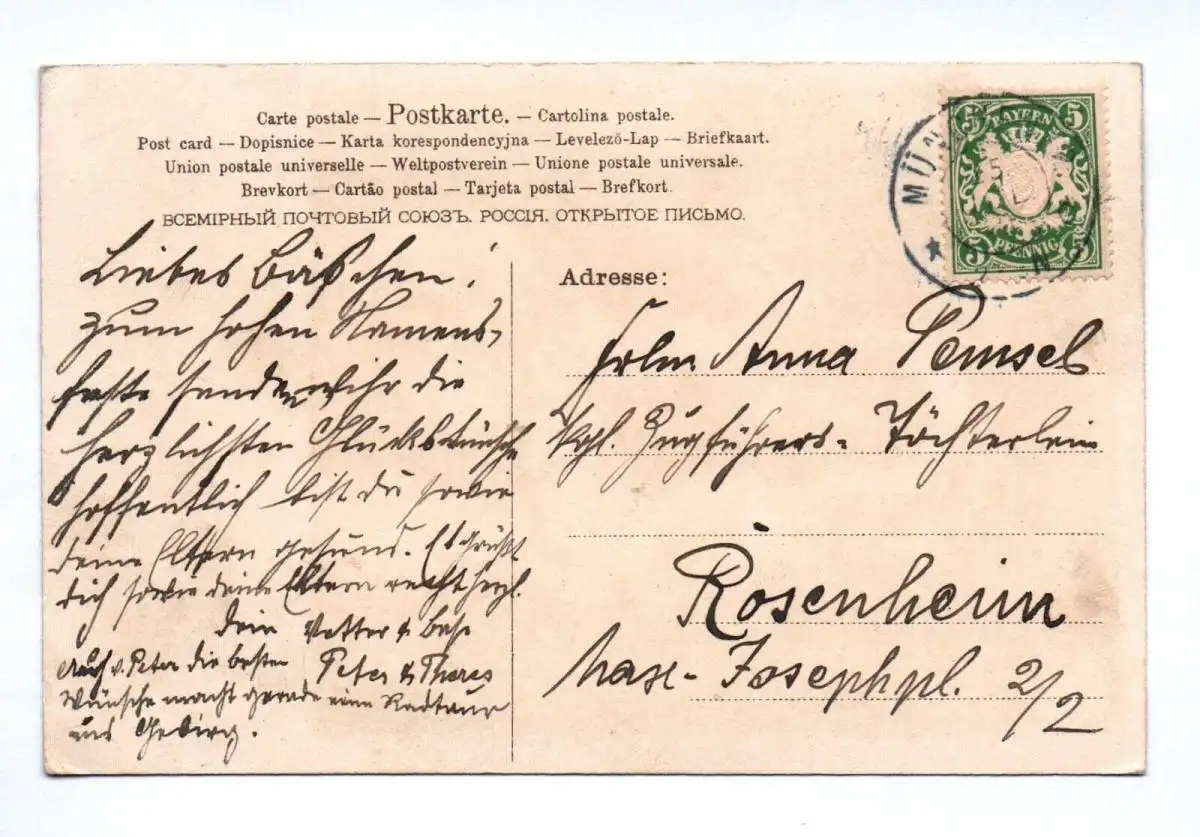 Carte postale — Postkarte. — Cartolina postale.
Post card — Dopisnice — Karta korespondencyjna — Levelező-Lap — Briefkaart.
Union postale universelle — Weltpostverein — Unione postale universale.
Brevkort — Cartão postal — Tarjeta postal — Brefkort.
ВСЕМІРНЫЙ ПОЧТОВЫЙ СОЮЗЪ. РОССІЯ. ОТКРЫТОЕ ПИСЬМО.
5 BAYERN 5
5 PFENNIG 5
MÜN
Liebes Bäschen!
zum hohen Namens-
feste senden wihr die
herzlichsten Glückswünsche
hoffentlich bist du sowie
deine Eltern gesund. Es grüßt
dich sowie deine Eltern recht herzl.
dein Vetter & Base
Peter & Theres
Auch v. Peter die besten
Wünsche macht gerade eine Radtour
ins Gebirg.
Adresse:
Frlm Anna Pemsel
Kgl. Zugführers- Töchterlein
Rosenheim
Max-Josephpl. 2/2